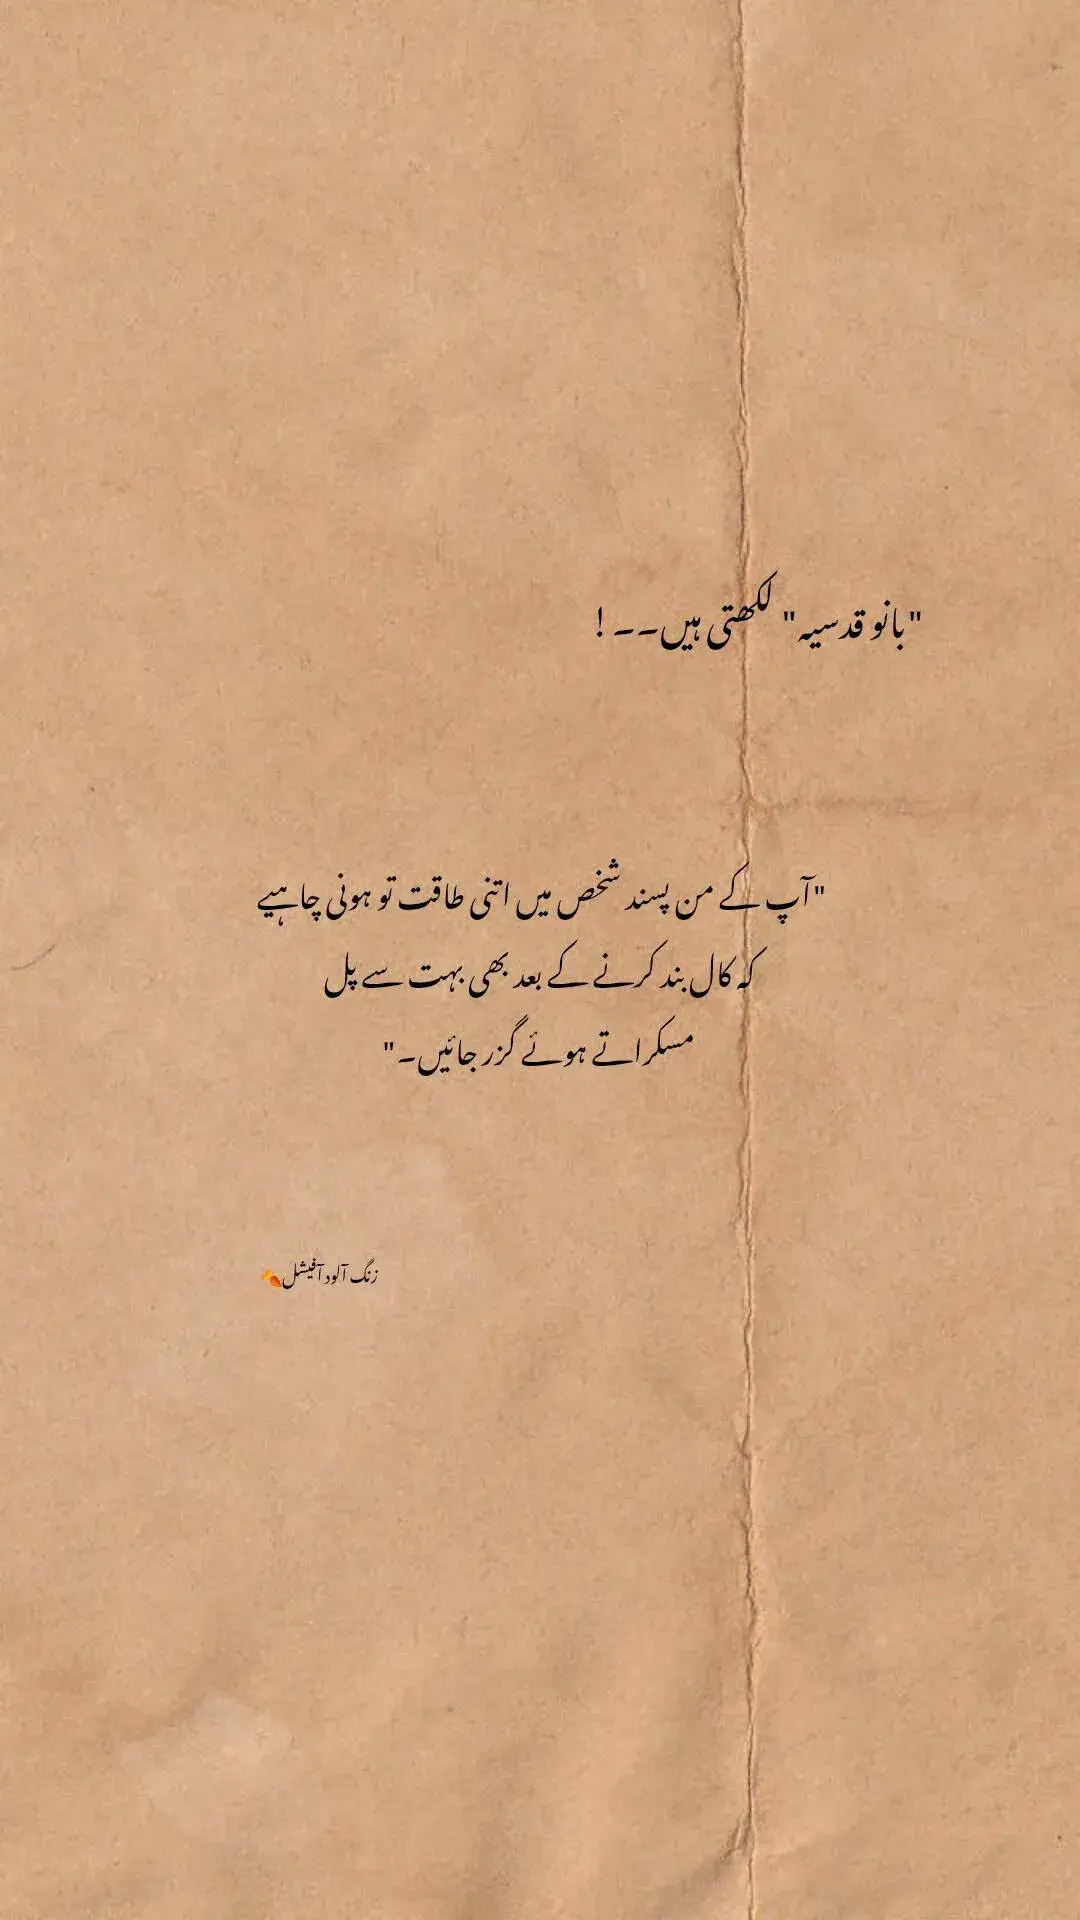 "بانو قدسیہ" لکھتی ہیں۔۔ !
"آپ کے من پسند شخص میں اتنی طاقت تو ہونی چاہیے
کہ کال بند کرنے کے بعد بھی بہت سے پل
مسکراتے ہوئے گزر جائیں۔"
زنگ آلود آفیشل🍂